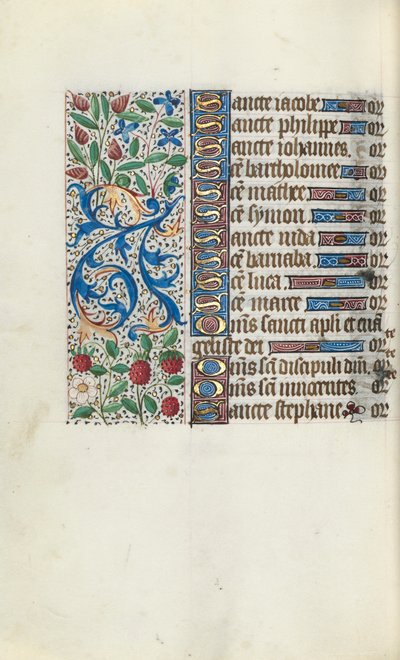 Sancte iacobe or
Sancte philippe or
Sancte iohannes or
Sc̄e bartholomee or
Sc̄e mathee or
Sc̄e symon or
Sancte iuda or
Sc̄e barnaba or
Sc̄e luca or
Sc̄e marce or
Om̄s sancti apl̄i et eua
geliste dei or te
Om̄s sc̄i discipuli dn̄i or te
Om̄s sc̄i innocentes or te
Sancte stephane or